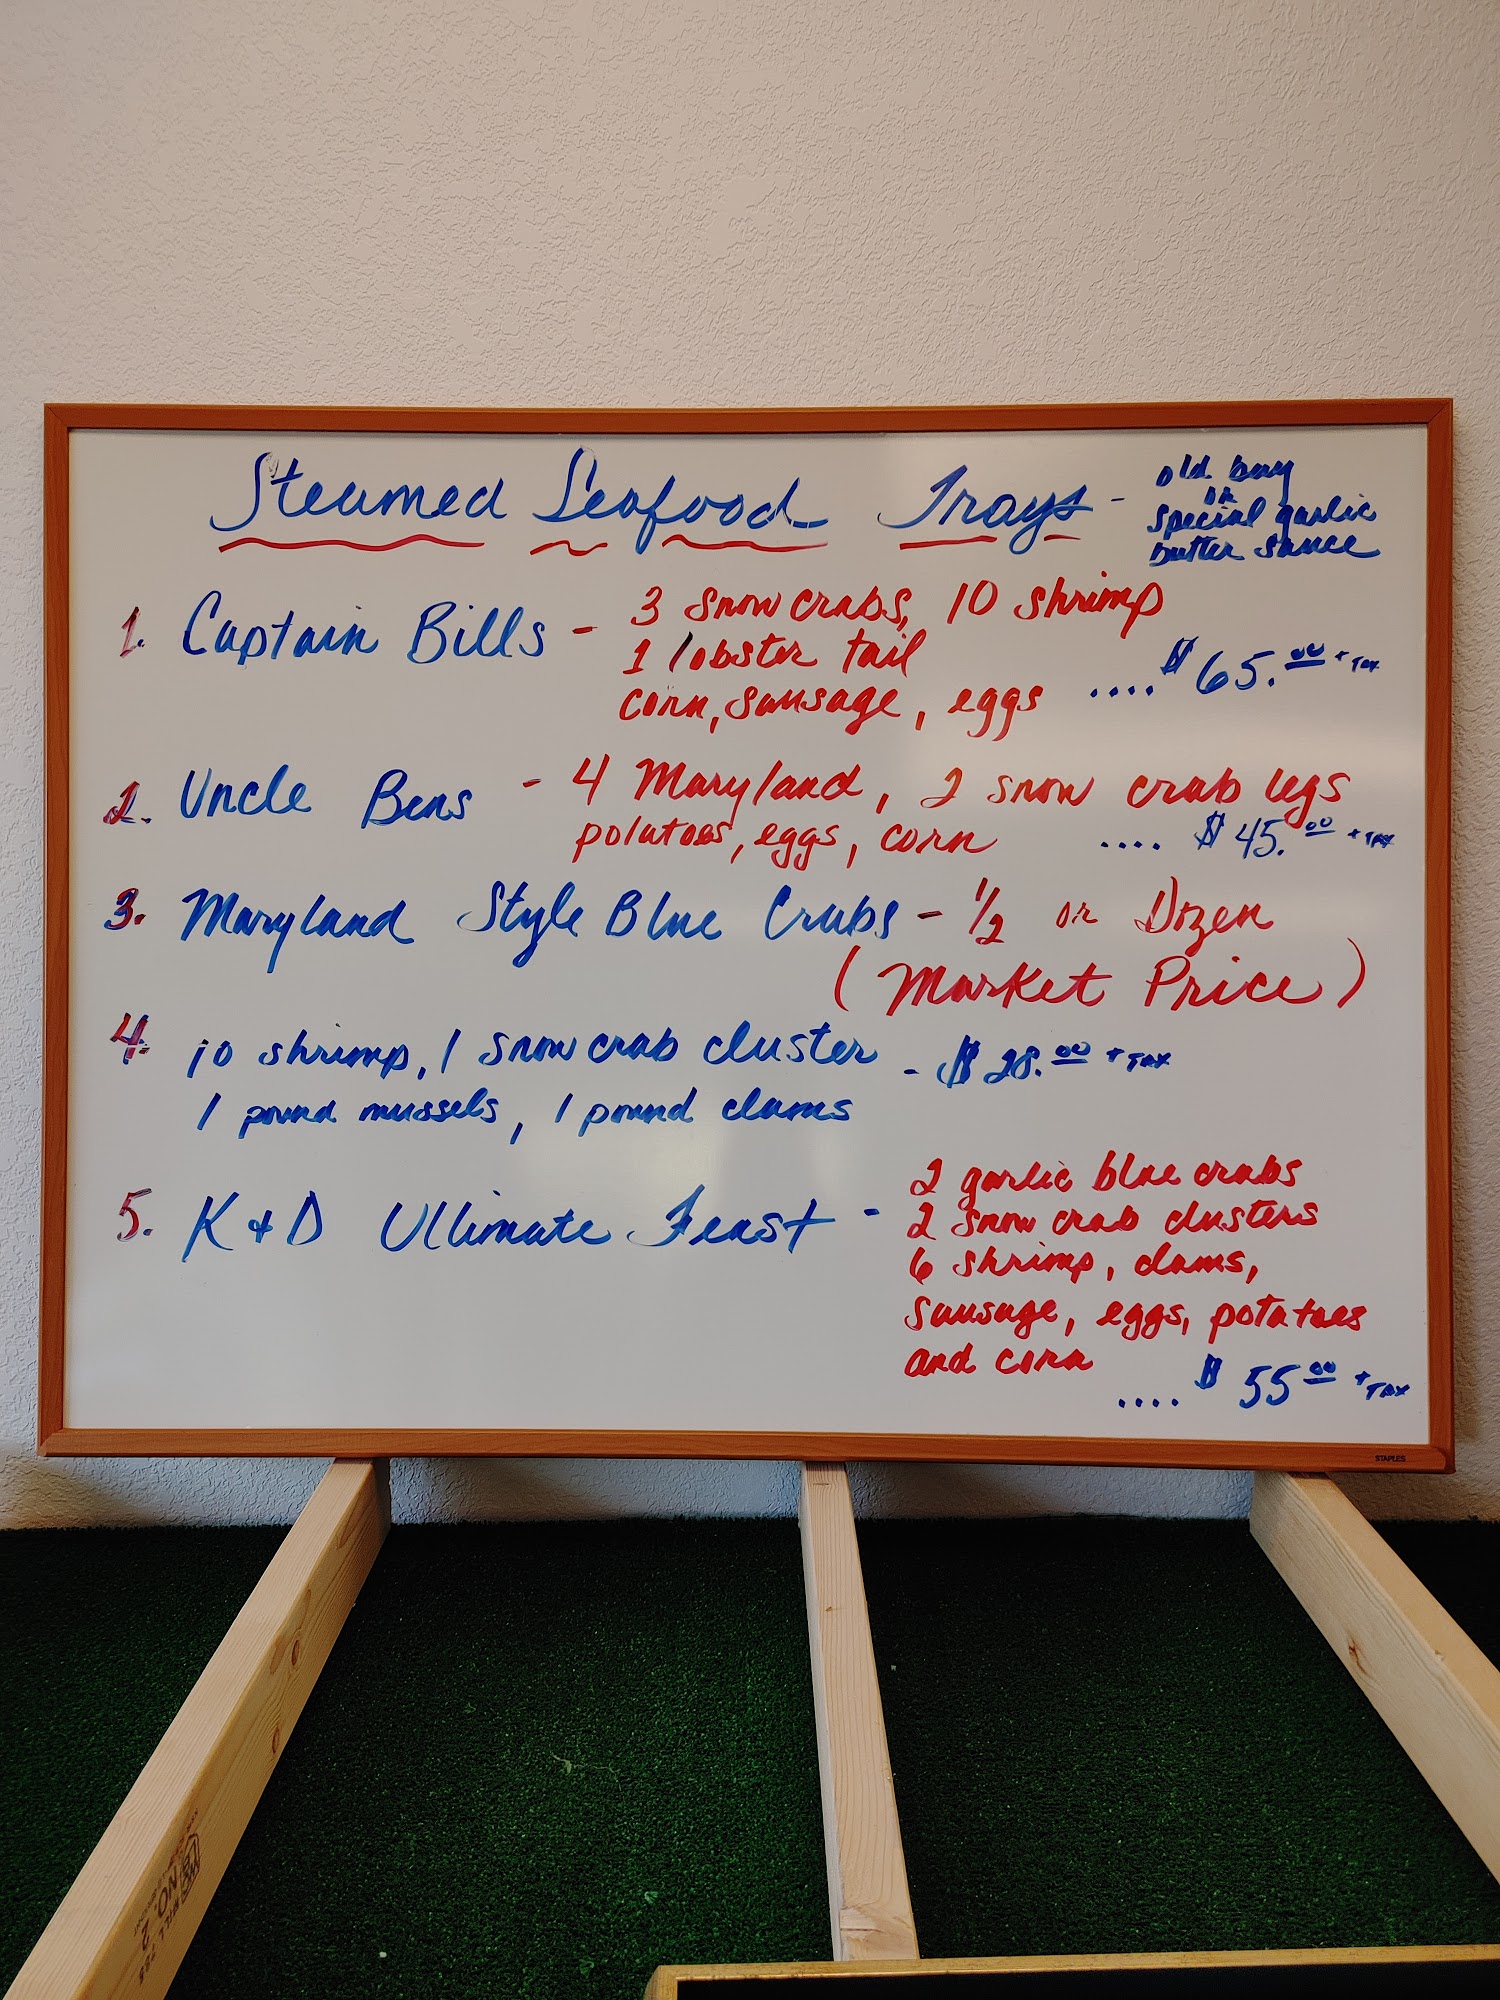 Steamed Seafood Trays - old bay
or
special garlic
butter sauce
1. Captain Bills - 3 snow crabs, 10 shrimp
1 lobster tail
corn, sausage, eggs .... $65.00 + Tax
2. Uncle Bens - 4 Maryland, 2 snow crab legs
potatoes, eggs, corn .... $45.00 + TAX
3. Maryland Style Blue Crabs - 1/2 or Dozen
(Market Price)
4. 10 shrimp, 1 snow crab cluster - $28.00 + Tax
1 pound mussels, 1 pound clams
5. K + D Ultimate Feast - 2 garlic blue crabs
2 snow crab clusters
6 shrimp, clams,
sausage, eggs, potatoes
and corn
.... $55.00 + Tax
STAPLES
NO. 2